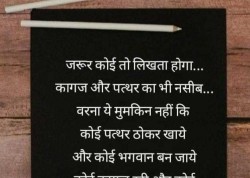 जरूर कोई तो लिखता होगा...
कागज और पत्थर का भी नसीब...
वरना ये मुमकिन नहीं कि
कोई पत्थर ठोकर खाये
और कोई भगवान बन जाये